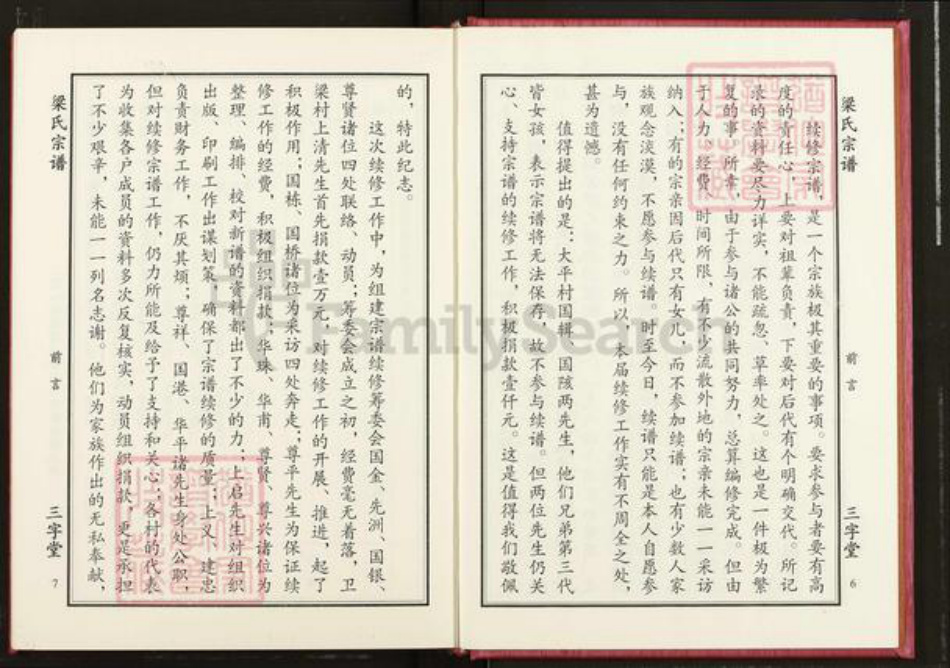 梁氏宗谱
前言
三字堂
6
续修宗谱,是一个宗族极其重要的事项。要求参与者要有高
度的责任心,上要对祖辈负责,下要对后代有个明确交代。所记
录的资料要尽力详实,不能疏忽、草率处之。这也是一件极为繁
复的事,所幸,由于参与诸公的共同努力,总算编修完成。但由
于人力、经费、时间所限,有不少流散外地的宗亲未能一一采访
纳入;有的宗亲因后代只有女儿,而不参加续谱;也有少数人家
族观念淡漠,不愿参与续谱。时至今日,续谱只能是本人自愿参
与,没有任何约束之力。所以,本届续修工作实有不周全之处,
甚为遗憾。
值得提出的是:大平村国辑、国陔两先生,他们兄弟第三代
皆女孩,表示宗谱将无法保存,故不参与续谱。但两位先生仍关
心、支持宗谱的续修工作,积极捐款壹仟元。这是值得我们敬佩
的,特此纪志。
这次续修工作中,为组建宗谱续修筹委会国金、先洲、国银、
尊贤诸位四处联络、动员;筹委会成立之初,经费毫无着落,卫
梁村上清先生首先捐款壹万元,对续修工作的开展、推进,起了
积极作用;国栋、国桥诸位为采访四处奔走;尊平先生为保证续
修工作的经费,积极组织捐款;华珠、华甫、尊贤、尊兴诸位为
整理、编排、校对新谱的资料都出了不少的力;上启先生对组织
出版、印刷工作出谋划策,确保了宗谱续修的质量;上义、建忠
负责财务工作,不厌其烦;尊祥、国港、华平诸先生身处公职,
但对续修宗谱工作,仍力所能及给予了支持和关心;各村的代表
为收集各户成员的资料多次反复核实,动员组织捐款,更是承担
了不少艰辛,未能一一列名志谢。他们为家族作出的无私奉献,
梁氏宗谱
前言
三字堂
7
FamilySearch